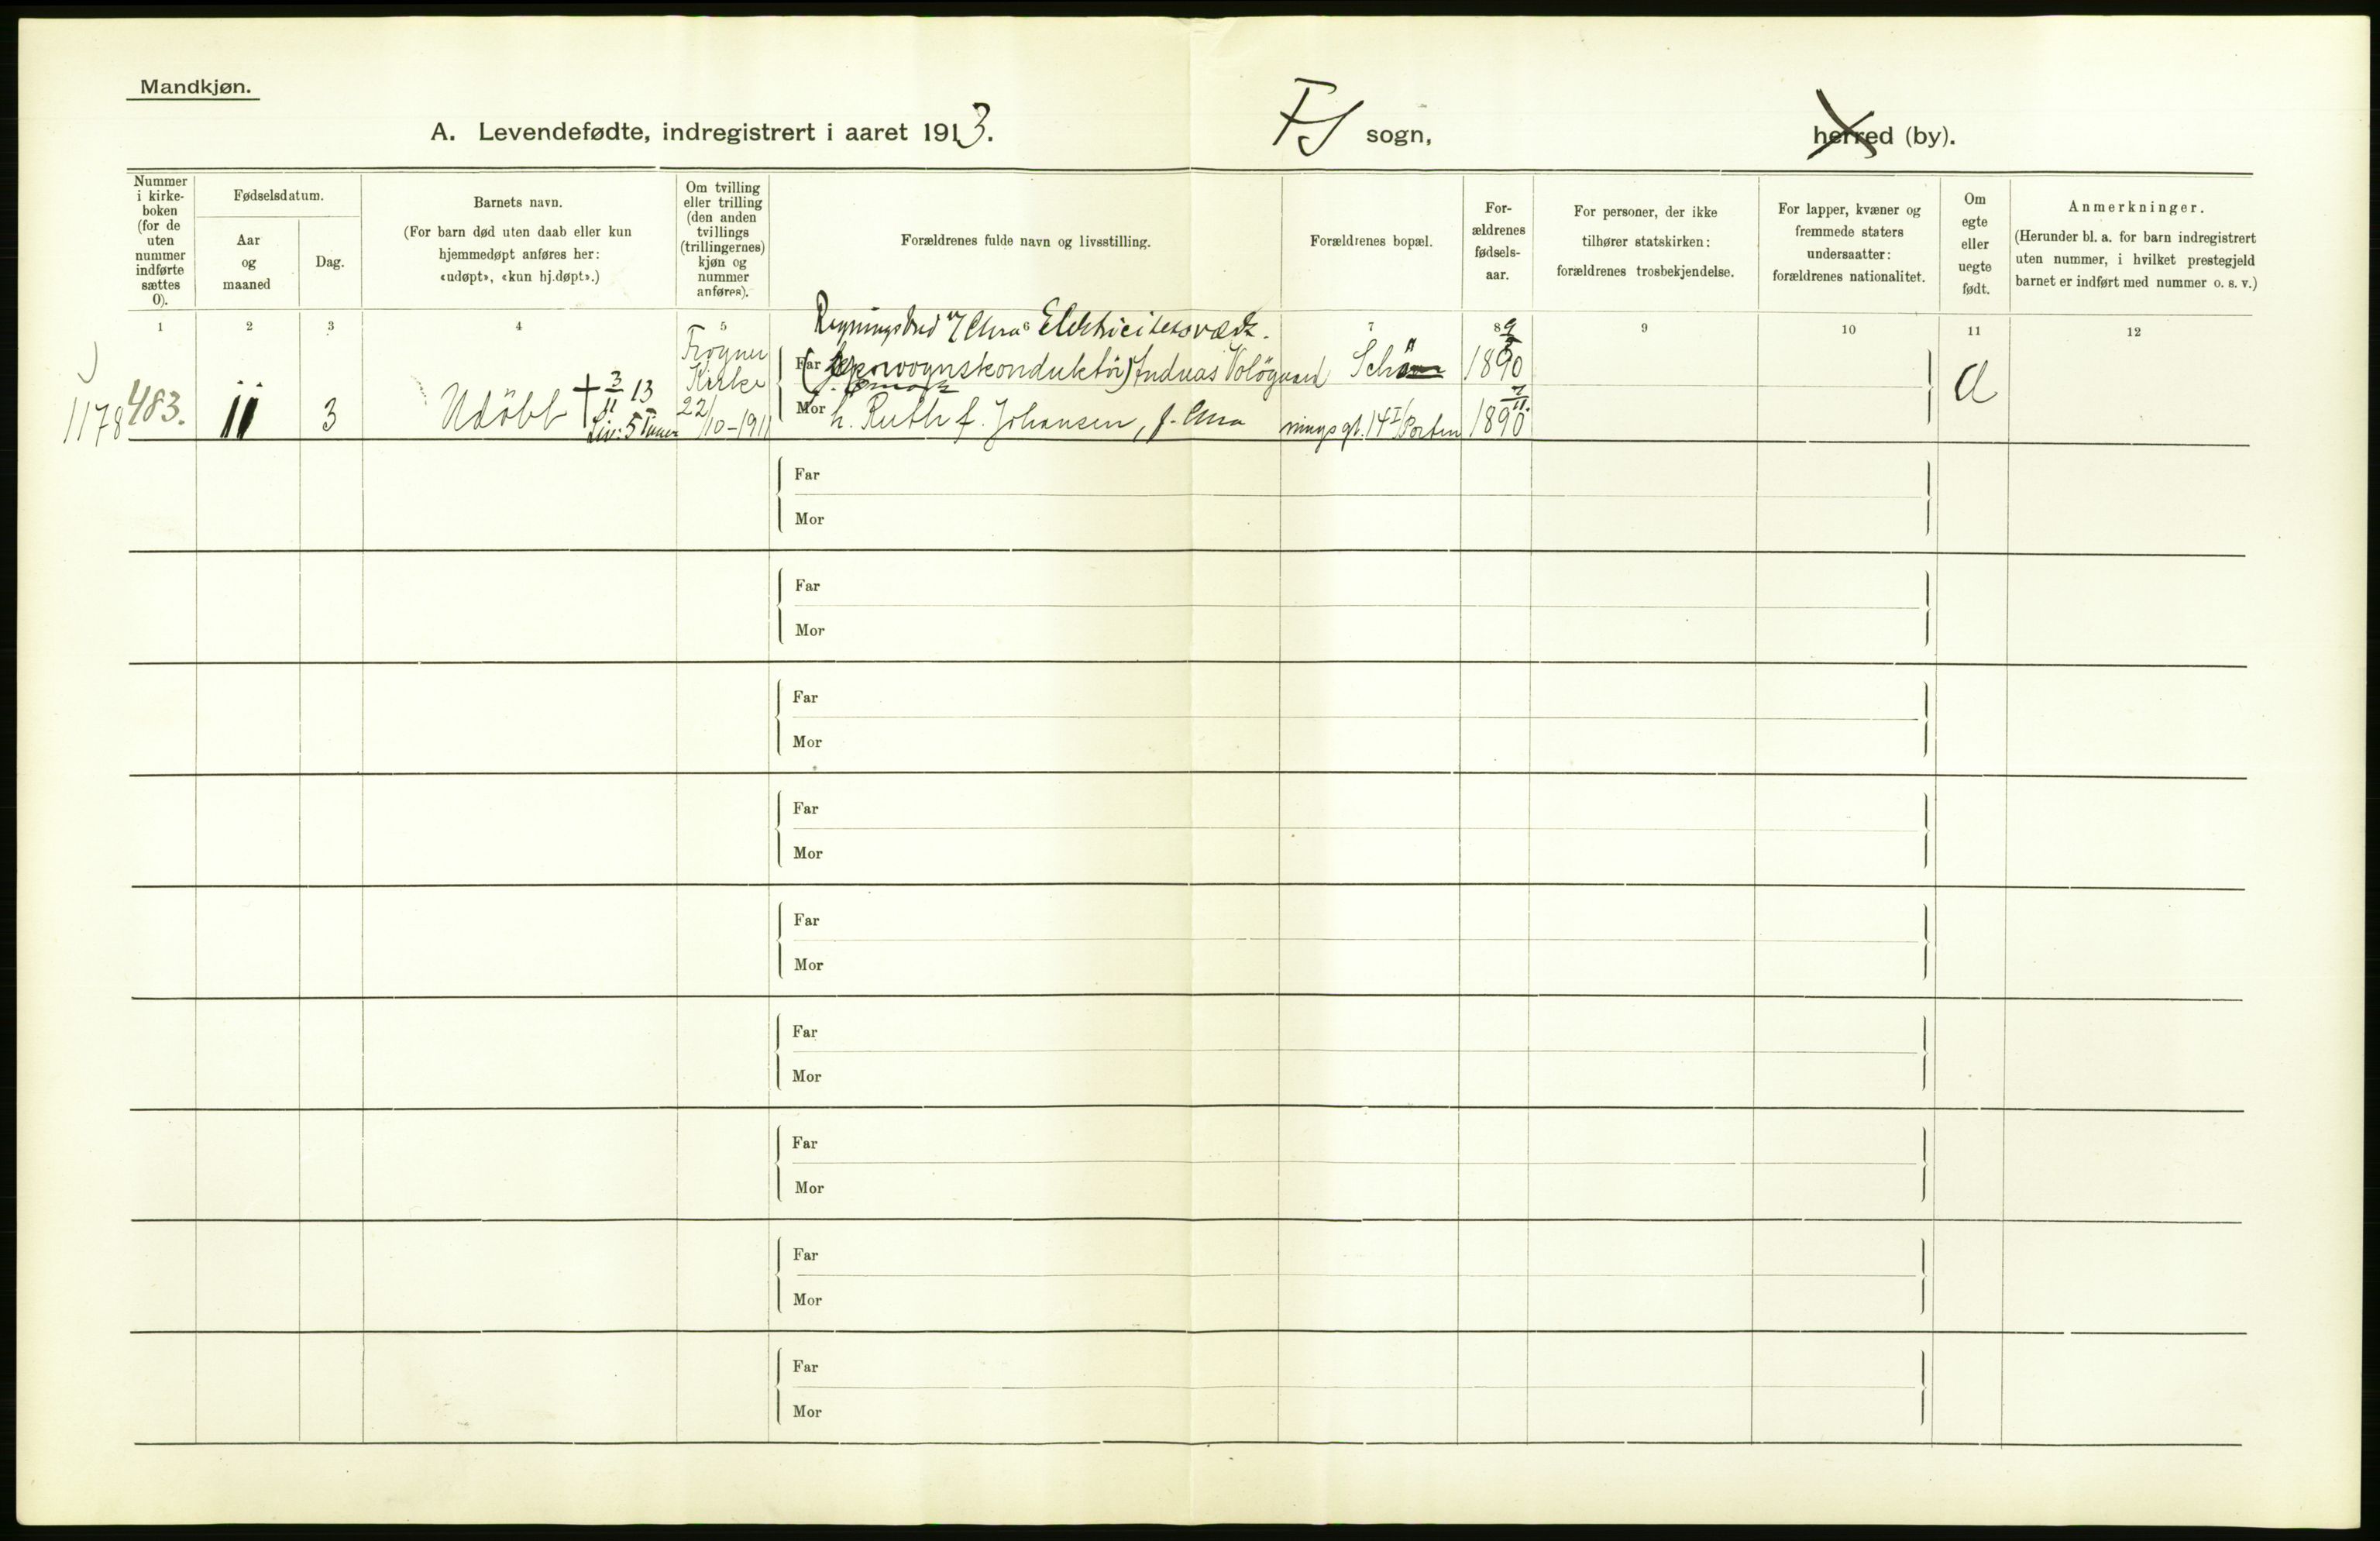 Mandkjøn.
A. Levendefødte, indregistrert i aaret 1913.
FJ sogn,
herred (by).
Nummer
i kirke-
boken
(for de
uten
nummer
indførte
sættes
0).
Fødselsdatum.
Aar
og
maaned
Dag.
Barnets navn.
(For barn død uten daab eller kun
hjemmedøpt anføres her:
«udøpt», «kun hj.døpt».)
Om tvilling
eller trilling
(den anden
tvillings
(trillingernes)
kjøn og
nummer
anføres).
Forældrenes fulde navn og livsstilling.
Forældrenes bopæl.
For-
ældrenes
fødsels-
aar.
For personer, der ikke
tilhører statskirken:
forældrenes trosbekjendelse.
For lapper, kvæner og
fremmede staters
undersaatter:
forældrenes nationalitet.
Om
egte
eller
uegte
født.
Anmerkninger.
(Herunder bl. a. for barn indregistrert
uten nummer, i hvilket prestegjeld
barnet er indført med nummer o. s. v.)
1 2 3 4 5 6 7 8 9 10 11 12
Regningsbud v/ Chra Elektricitetsværk.
1178 483. 11 3 Udöbt † 3/11 13
Liv: 5 Timer
Frogner
Kirke
22/10-1911
Far sporvognskonduktör) Andreas
Mor h. Ruth f. Johansen, f. Chra
ningsgt. 14 I/Porten
9 1890
7/11. 1890
Far
Mor
Far
Mor
Far
Mor
Far
Mor
Far
Mor
Far
Mor
Far
Mor
Far
Mor
Far
Mor